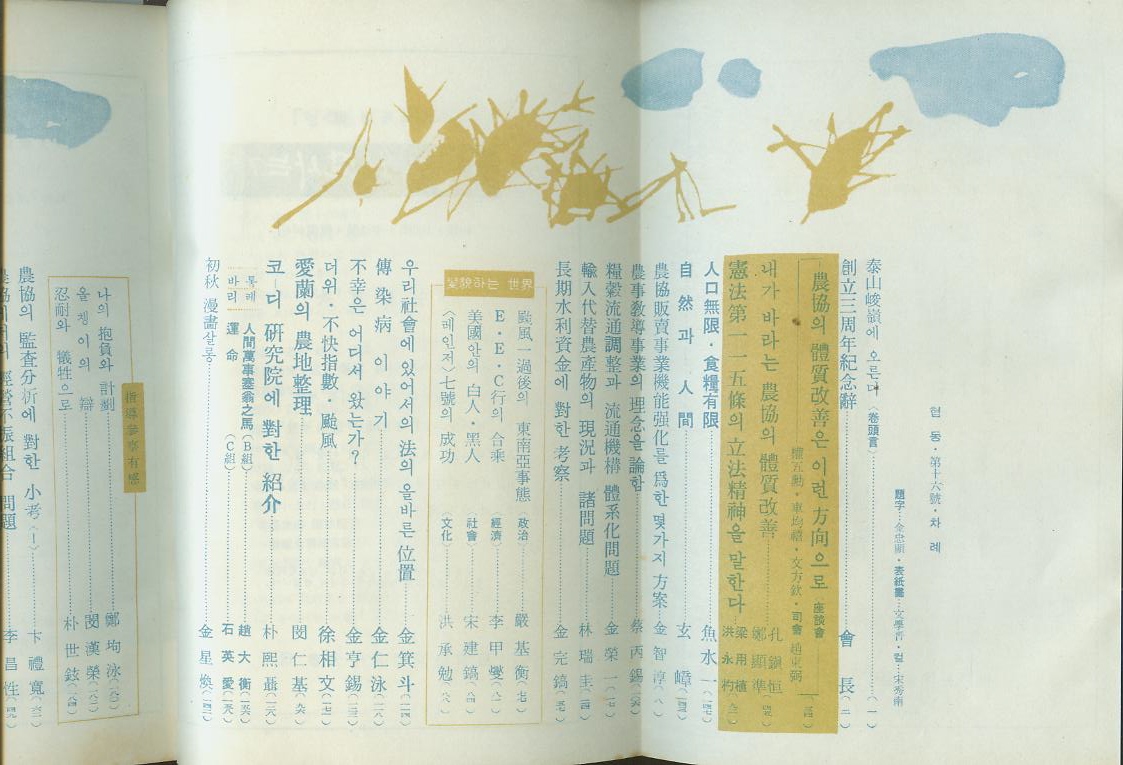 협동・第十六號・차례
題字…金忠顯・表紙畵…文學晋・컽…宋秀南
泰山峻嶺에 오른다〈卷頭言〉(一)
創立三周年紀念辭 會長
農協의 體質改善은 이런 方向으로 座談會
權五勳・車均禧・文方欽・司會 趙東弼
내가 바라는 農協의 體質改善 孔鎭恒 鄭顯準
憲法第一一五條의 立法精神을 말한다 梁用植 洪永杓
人口無限・食糧有限 魚水一
自然과 人間 玄
農協販賣事業機能强化를 爲한 몇가지 方案 金智淳
農事敎導事業의 理念을 論함 蔡丙錫
糧穀流通調整과 流通機構 體系化問題 金榮一
輸入代替農產物의 現況과 諸問題 林瑞圭
長期水利資金에 對한 考察 金完鎬
變貌하는 世界
颱風一過後의 東南亞事態〈政治〉嚴基衡
E・E・C行의 合乘〈經濟〉李甲燮
美國안의 白人・黑人〈社會〉宋建鎬
〈레인저〉七號의 成功〈文化〉洪承勉
우리社會에 있어서의 法의 올바른 位置 金箕斗
傳染病 이야기 金仁泳
不幸은 어디서 왔는가? 金亨錫
더위・不快指數・颱風 徐相文
愛蘭의 農地整理 閔仁基
코ー디 硏究院에 對한 紹介 朴熙聶
룩레 바리
人間萬事塞翁之馬(B組) 趙大衡
運命(C組) 石英愛
初秋 漫畵살롱 金星煥
指導參事有感
나의 抱負와 計劃 鄭坰泳
올챙이의 辯 閔漢榮
忍耐와 犧牲으로 朴世鉉
農協의 監査分析에 對한 小考 卞禮寬
經營不振組合 問題 李昌性